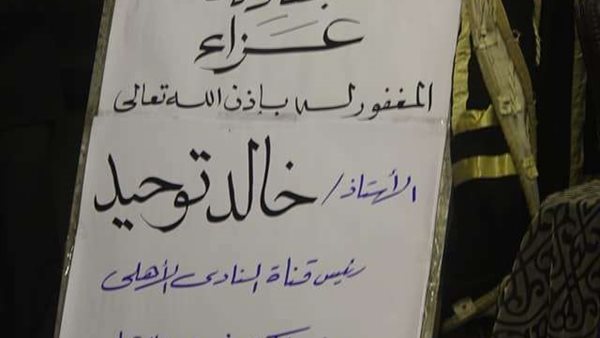 عزاء
المغفور له بإذن الله تعالى
الأستاذ / خالد توحيد
رئيس قناة النادى الأهلى